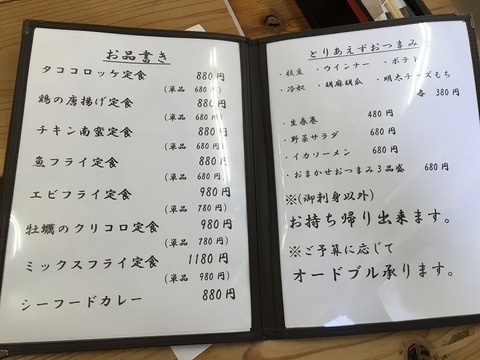 お品書き
タココロッケ定食 880円
(単品 680円)
鶏の唐揚げ定食 880円
(単品 680円)
チキン南蛮定食 880円
(単品 680円)
魚フライ定食 880円
(単品 680円)
エビフライ定食 980円
(単品 780円)
牡蠣のクリコロ定食 980円
(単品 780円)
ミックスフライ定食 1180円
(単品 980円)
シーフードカレー 880円
とりあえずおつまみ
・枝豆 ・ウインナー ・ポテト
・冷奴 ・胡麻胡瓜 ・明太チーズもち
各 380円
・生春巻 480円
・野菜サラダ 680円
・イカソーメン 680円
・おまかせおつまみ3品盛 680円
※(御刺身以外)
お持ち帰り出来ます。
※ご予算に応じて
オードブル承ります。